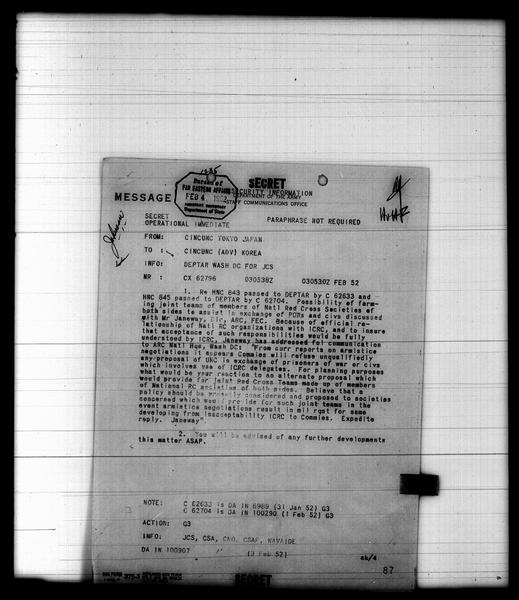 1535
SECRET
Bureau of
FAR EASTERN AFFAIRS
FEB 4 1952
Department of State
SECURITY INFORMATION
DEPARTMENT OF THE ARMY
STAFF COMMUNICATIONS OFFICE
MESSAGE
SECRET
OPERATIONAL IMMEDIATE
PARAPHRASE NOT REQUIRED
Johnson
FROM: CINCUNC TOKYO JAPAN
TO : CINCUNC (ADV) KOREA
INFO: DEPTAR WASH DC FOR JCS
NR : CX 62796 030538Z 030530Z FEB 52
1. Re HNC 843 passed to DEPTAR by C 62633 and
HNC 845 passed to DEPTAR by C 62704. Possibility of form-
ing joint teams of members of Natl Red Cross Societies of
both sides to assist in exchange of POWs and civs discussed
with Mr Janeway, Dir, ARC, FEC. Because of official re-
lationship of Natl RC organizations with ICRC, and to insure
that acceptance of such responsibilities would be fully
understood by ICRC, Janeway has addressed fol communication
to ARC Natl Hqs, Wash DC: "From curr reports on armistice
negotiations it appears Commies will refuse unqualifiedly
any proposal of UNC in exchange of prisoners of war or civs
which involves use of ICRC delegates. For planning purposes
what would be your reaction to an alternate proposal which
would provide for joint Red Cross Teams made up of members
of National RC societies of both sides. Believe that a
policy should be considered and proposed to societies
concerned which would provide for such joint teams in the
event armistice negotiations result in mil rqmt for same
developing from inacceptability ICRC to Commies. Expedite
reply. Janeway".
2. You will be advised of any further developments
this matter ASAP.
NOTE: C 62633 is DA IN 6989 (31 Jan 52) G3
C 62704 is DA IN 100290 (1 Feb 52) G3
ACTION: G3
INFO: JCS, CSA, CNO, CSAF, NAVAIDE
DA IN 100907 (3 Feb 52)
mb/4
87
375-3
SECRET